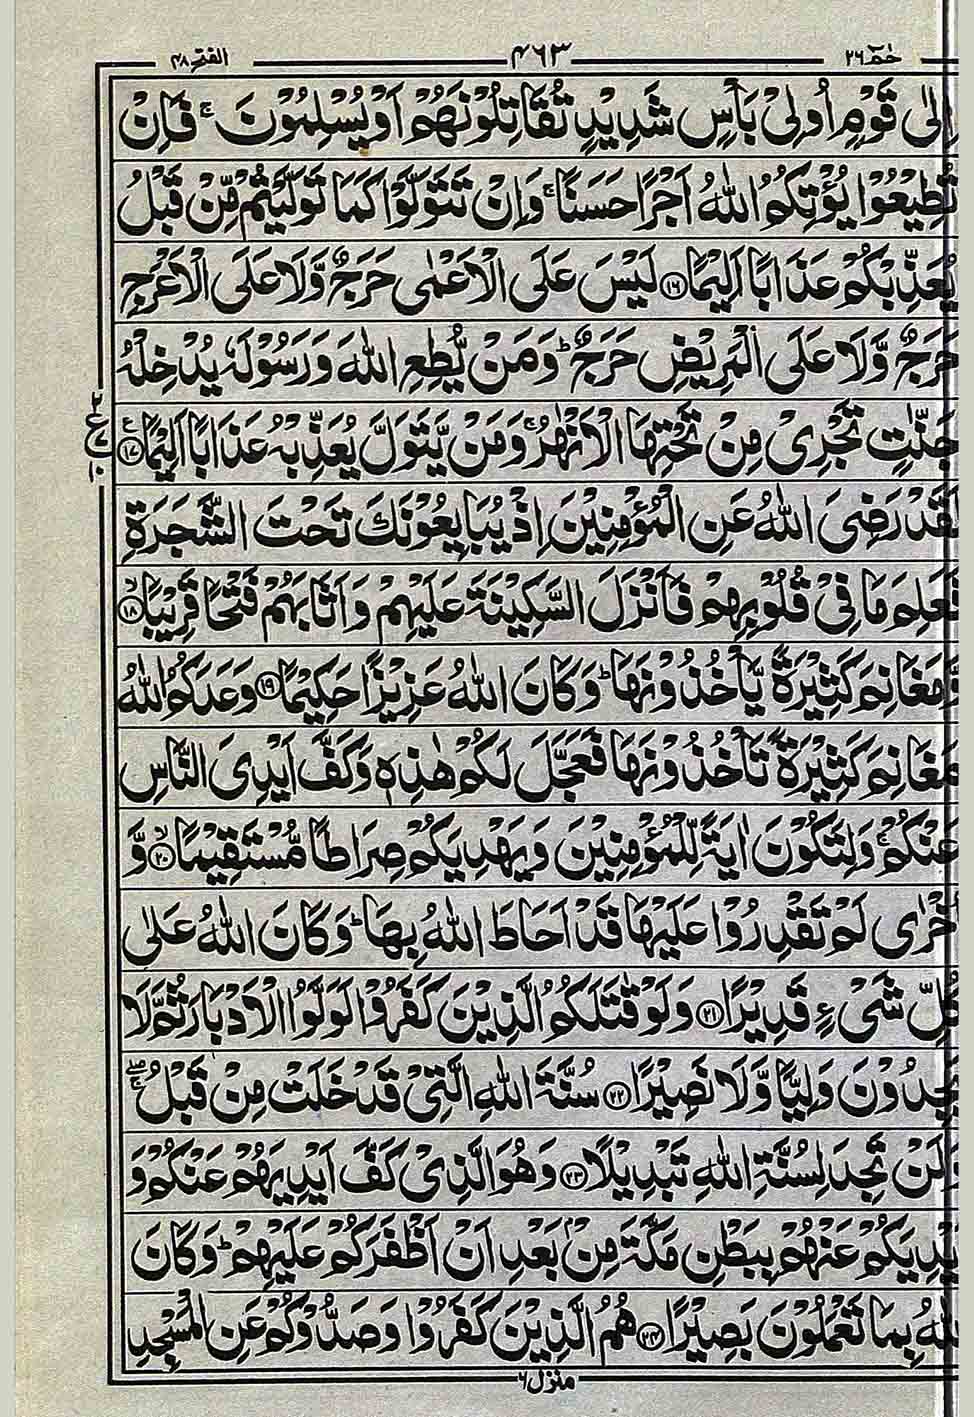 حٰمٓ ٢٦ ٤٦٣ الفتح ٤٨
اِلٰى قَوْمٍ اُولِيْ بَاْسٍ شَدِيْدٍ تُقَاتِلُوْنَهُمْ اَوْ يُسْلِمُوْنَ ۚ فَاِنْ
تُطِيْعُوْا يُؤْتِكُمُ اللّٰهُ اَجْرًا حَسَنًا ۚ وَاِنْ تَتَوَلَّوْا كَمَا تَوَلَّيْتُمْ مِّنْ قَبْلُ
يُعَذِّبْكُمْ عَذَابًا اَلِيْمًا ﴿١٦﴾ لَيْسَ عَلَى الْاَعْمٰى حَرَجٌ وَّلَا عَلَى الْاَعْرَجِ
حَرَجٌ وَّلَا عَلَى الْمَرِيْضِ حَرَجٌ ؕ وَمَنْ يُّطِعِ اللّٰهَ وَرَسُوْلَهٗ يُدْخِلْهُ
جَنّٰتٍ تَجْرِيْ مِنْ تَحْتِهَا الْاَنْهٰرُ ۚ وَمَنْ يَّتَوَلَّ يُعَذِّبْهُ عَذَابًا اَلِيْمًا ﴿١٧﴾ ع ٢ ١٠
لَقَدْ رَضِيَ اللّٰهُ عَنِ الْمُؤْمِنِيْنَ اِذْ يُبَايِعُوْنَكَ تَحْتَ الشَّجَرَةِ
فَعَلِمَ مَا فِيْ قُلُوْبِهِمْ فَاَنْزَلَ السَّكِيْنَةَ عَلَيْهِمْ وَاَثَابَهُمْ فَتْحًا قَرِيْبًا ۙ﴿١٨﴾
وَّمَغَانِمَ كَثِيْرَةً يَّاْخُذُوْنَهَا ؕ وَكَانَ اللّٰهُ عَزِيْزًا حَكِيْمًا ﴿١٩﴾ وَعَدَكُمُ اللّٰهُ
مَغَانِمَ كَثِيْرَةً تَاْخُذُوْنَهَا فَعَجَّلَ لَكُمْ هٰذِهٖ وَكَفَّ اَيْدِيَ النَّاسِ
عَنْكُمْ ۚ وَلِتَكُوْنَ اٰيَةً لِّلْمُؤْمِنِيْنَ وَيَهْدِيَكُمْ صِرَاطًا مُّسْتَقِيْمًا ۙ﴿٢٠﴾ وَّ
اُخْرٰى لَمْ تَقْدِرُوْا عَلَيْهَا قَدْ اَحَاطَ اللّٰهُ بِهَا ؕ وَكَانَ اللّٰهُ عَلٰى
كُلِّ شَيْءٍ قَدِيْرًا ﴿٢١﴾ وَلَوْ قٰتَلَكُمُ الَّذِيْنَ كَفَرُوْا لَوَلَّوُا الْاَدْبَارَ ثُمَّ لَا
يَجِدُوْنَ وَلِيًّا وَّلَا نَصِيْرًا ﴿٢٢﴾ سُنَّةَ اللّٰهِ الَّتِيْ قَدْ خَلَتْ مِنْ قَبْلُ ۖۚ
وَلَنْ تَجِدَ لِسُنَّةِ اللّٰهِ تَبْدِيْلًا ﴿٢٣﴾ وَهُوَ الَّذِيْ كَفَّ اَيْدِيَهُمْ عَنْكُمْ وَ
اَيْدِيَكُمْ عَنْهُمْ بِبَطْنِ مَكَّةَ مِنْۢ بَعْدِ اَنْ اَظْفَرَكُمْ عَلَيْهِمْ ؕ وَكَانَ
اللّٰهُ بِمَا تَعْمَلُوْنَ بَصِيْرًا ﴿٢٤﴾ هُمُ الَّذِيْنَ كَفَرُوْا وَصَدُّوْكُمْ عَنِ الْمَسْجِدِ
منزل ٦